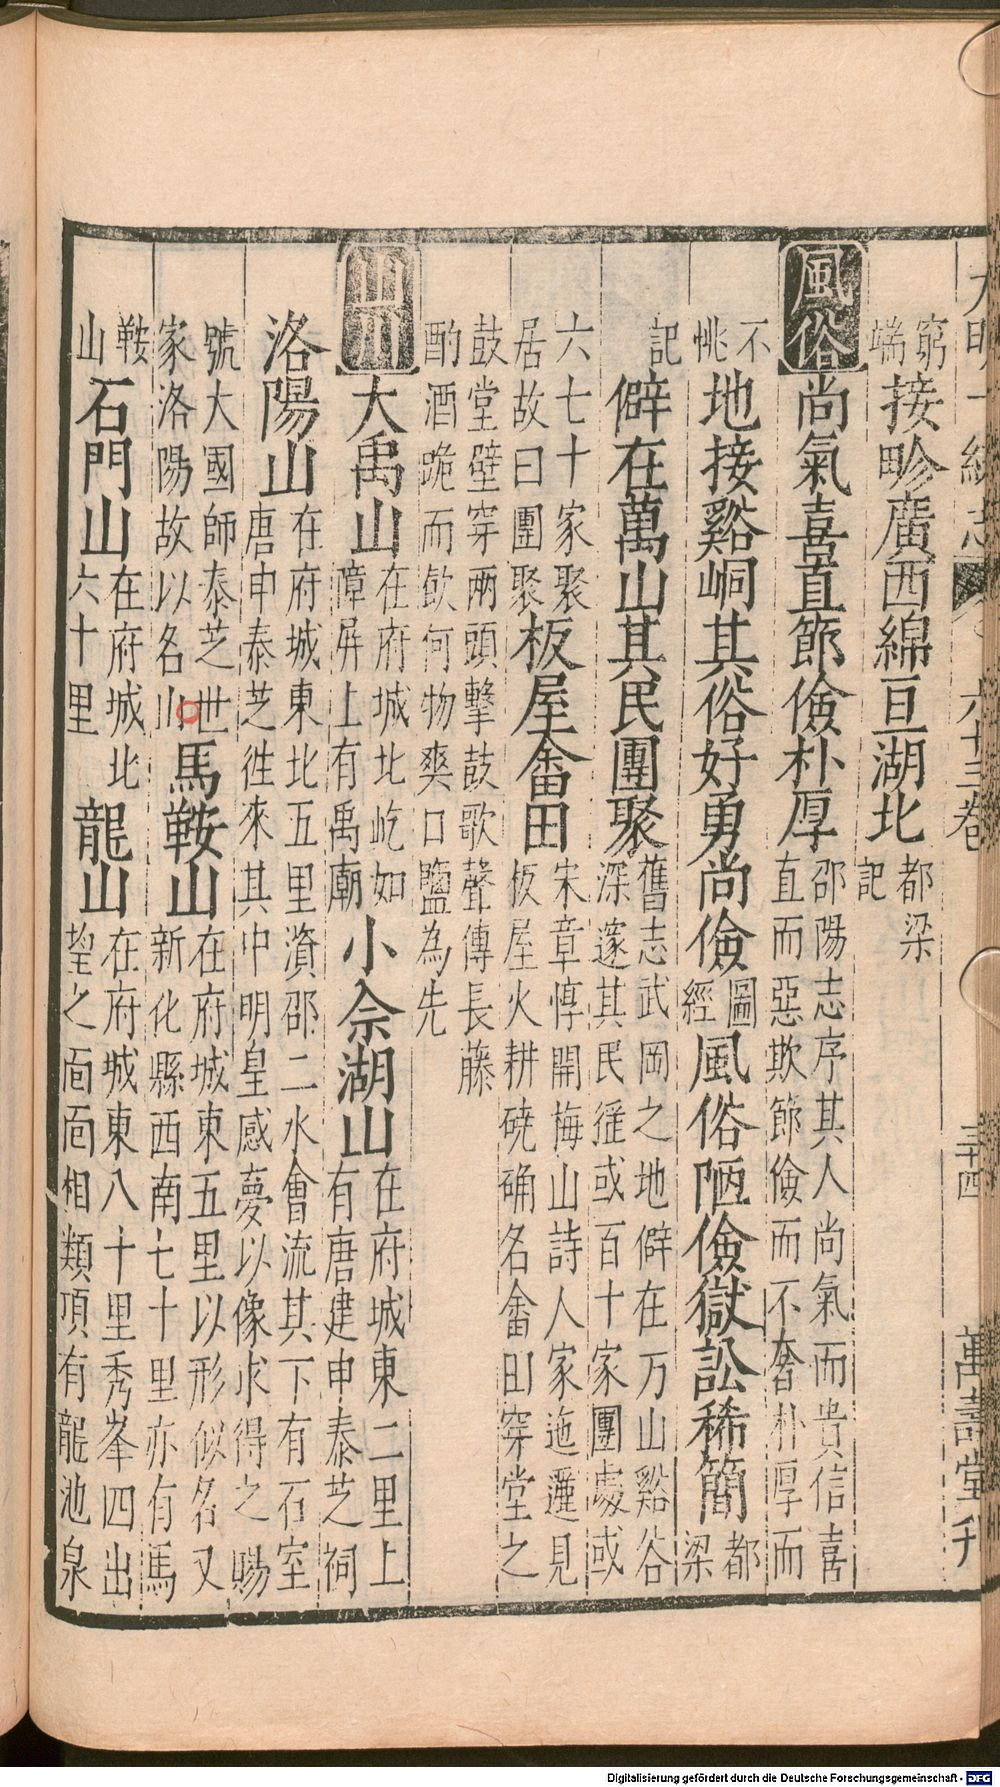 大明一統志 六十三卷 三十四 萬壽堂刋
窮端接畛廣西綿亘湖北都梁記
風俗 尚氣喜直節儉朴厚邵陽志序其人尚氣而貴信喜直而惡欺節儉而不奢朴厚而
不恌地接谿峒其俗好勇尚儉圖經風俗陋儉獄訟稀簡都梁
記僻在萬山其民團聚舊志武岡之地僻在万山谿谷深邃其民徃或百十家團處或
六七十家聚居故曰團聚板屋畬田宋章惇開梅山詩人家迤邐見板屋火耕磽确名畬田穿堂之
鼓堂壁穿兩頭擊鼓歌聲傳長藤酌酒跪而飲何物爽口鹽為先
山川 大禹山在府城北屹如障屏上有禹廟小佘湖山在府城東二里上有唐建申泰芝祠
洛陽山在府城東北五里資邵二水會流其下有石室唐申泰芝徃來其中明皇感夢以像求得之賜
號大國師泰芝世家洛陽故以名山馬鞍山在府城東五里以形似名又新化縣西南七十里亦有馬
鞍山石門山在府城北六十里龍山在府城東八十里秀峯四出望之面面相類項有龍池泉
Digitalisierung gefördert durch die Deutsche Forschungsgemeinschaft - DFG